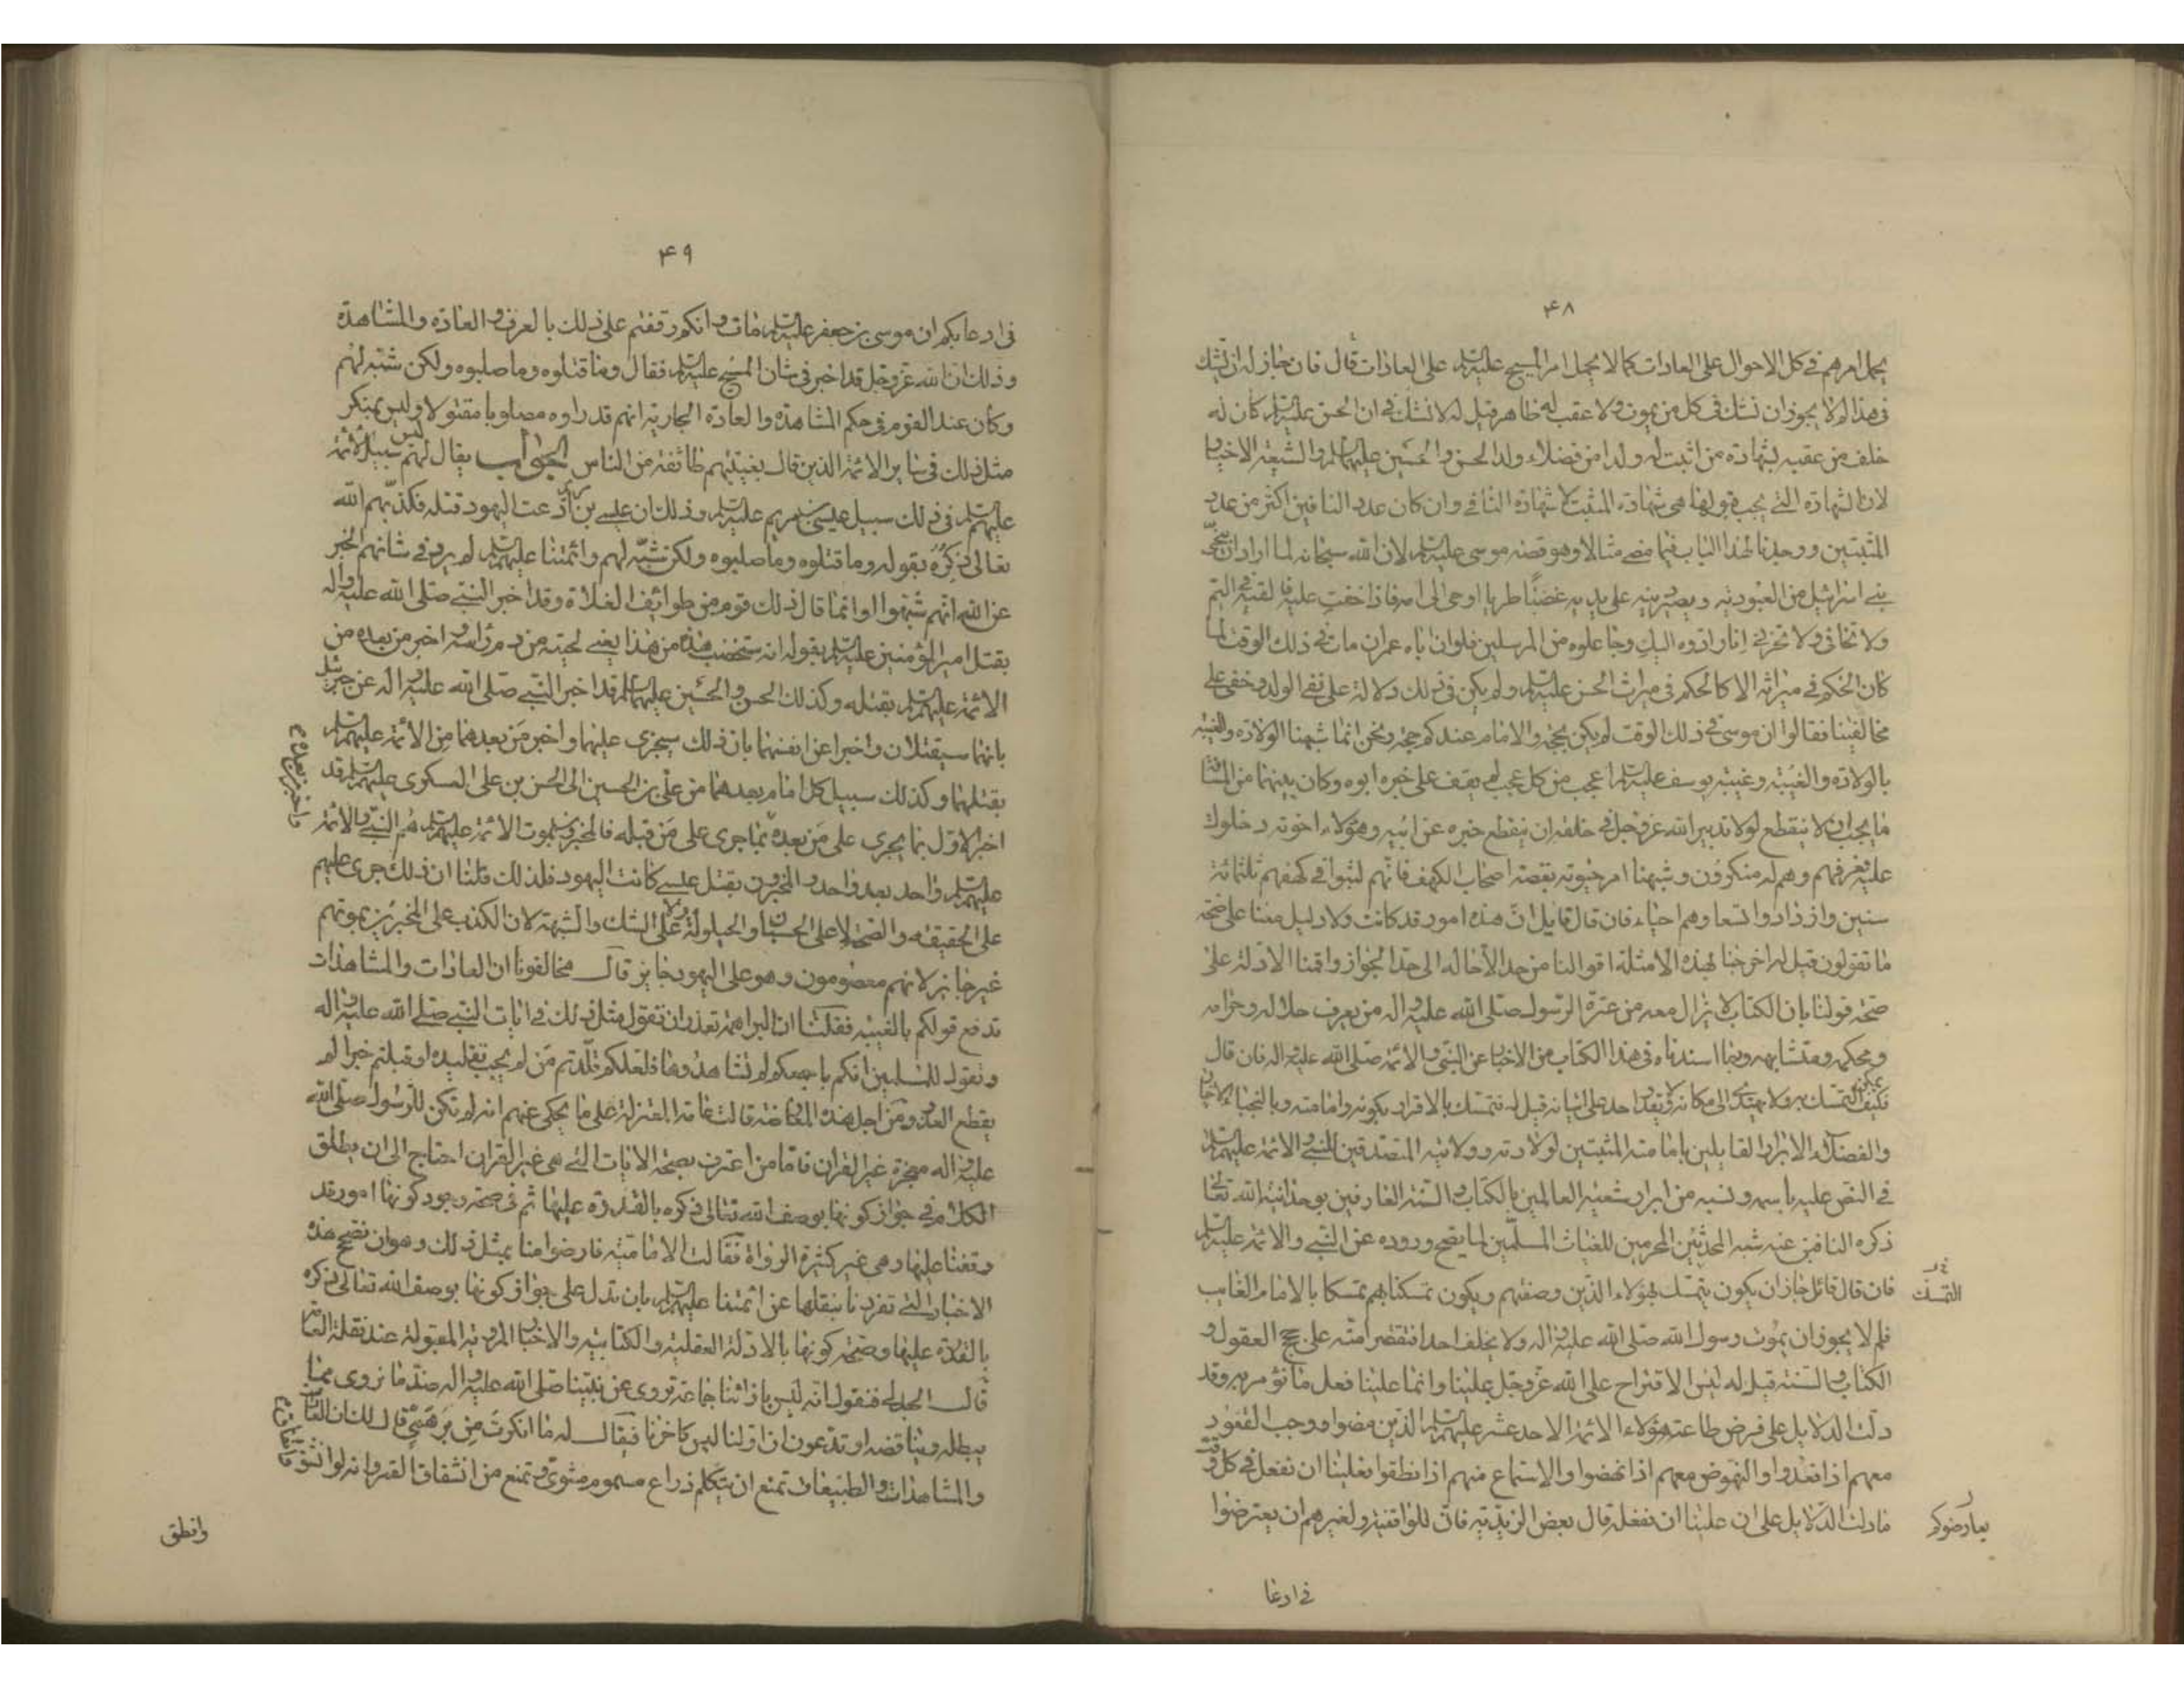 ۴۸
يحمل امرهم في كل الاحوال على العادات كما لا يحمل امر المسيح عليه السلم على العادات قال فان جاز له ان يشك
في هذا لم لا يجوز ان نشك في كل من يموت ولا عقب له ظاهر قيل له لا نشك في ان الحسن عليه السلم كان له
خلف من عقبه بشهادة من اثبت له ولدا من فضلاء ولد الحسن والحسين عليهما السلم والشيعة الاخيار
لان الشهادة التي يجب قبولها هي شهادة المثبت لا شهادة النافي وان كان عدد النافين اكثر من عدد
المثبتين ووجدنا لهذا الباب فيما مضى مثالا وهو قصة موسى عليه السلم لان الله سبحانه لما اراد ان ينجى
بني اسرائيل من العبودية ويصير دينه على يديه غضا طريا اوحى الى امه فاذا خفت عليه فالقيه في اليم
ولا تخافي ولا تحزني انا رادوه اليك وجاعلوه من المرسلين فلو ان اباه عمران مات في ذلك الوقت لما
كان الحكم في ميراثه الا كالحكم في ميراث الحسن عليه السلم ولم يكن في ذلك دلالة على نفي الولد وخفي على
مخالفينا فقالوا ان موسى في ذلك الوقت لم يكن بحجة والامام عندكم حجة ونحن انما شبهنا الولادة والغيبة
بالولادة والغيبة وغيبة يوسف عليه السلم اعجب من كل عجب لم يقف على خبره ابوه وكان بينهما من المسافة
ما يجب ان لا ينقطع لولا تدبير الله عز وجل في خلقه ان ينقطع خبره عن ابيه وهؤلاء اخوته دخلوا
عليه فعرفهم وهم له منكرون وشبهنا امر حيوته بقصة اصحاب الكهف فانهم لبثوا في كهفهم ثلثمائة
سنين وازدادوا تسعا وهم احياء فان قال قايل ان هذه امور قد كانت ولا دليل معنا على صحة
ما تقولون قيل له اخرجنا بهذه الامثلة اقوالنا من حد الاحالة الى حد الجواز واقمنا الادلة على
صحة قولنا بان الكتاب لا يزال معه من عترة الرسول صلى الله عليه واله من يعرف حلاله وحرامه
ومحكمه ومتشابهه وبما اسندناه في هذا الكتاب من الاخبار عن النبي والائمة صلى الله عليه واله فان قال
فكيف التمسك به ولا نهتدي الى مكانه ولا يقدر احد على اتيانه قيل له نتمسك بالاقرار بكونه وامامته وبالنجباء الاخيار
والفضلاء الابرار القايلين بامامته المثبتين لولادته وولايته المتصدقين للنبي والائمة عليهم السلم
في النص عليه باسمه ونسبه من ابرار شيعته العالمين بالكتاب والسنة العارفين بوحدانية الله تعالى
ذكره النافين عنه شبه المحدثين المحرمين للقياس المسلمين لما يصح وروده عن النبي والائمة عليهم السلم
فان قال قائل جاز ان يكون يتمسك بهؤلاء الذين وصفتهم ويكون تمسكنا بهم تمسكا بالامام الغايب التمسك
فلم لا يجوز ان يموت رسول الله صلى الله عليه واله ولا يخلف احدا فتقتصر امته على حجج العقول و
الكتاب والسنة قيل له ليس الاقتراح على الله عز وجل علينا وانما علينا فعل ما نؤمر به وقد
دلت الدلايل على فرض طاعة هؤلاء الائمة الاحد عشر عليهم السلم الذين مضوا ووجب القعود
معهم اذا قعدوا والنهوض معهم اذا نهضوا والاستماع منهم اذا نطقوا فعلينا ان نفعل في كل وقت
ما دلت الدلايل على ان علينا ان نفعله قال بعض الزيدية فان للواقفة ولغيرهم ان يعترضوا يعارضوكم
في ادعا
۴۹
في ادعائكم ان موسى بن جعفر عليه السلم مات وانكم وقفتم على ذلك بالعرف والعادة والمشاهدة
وذلك ان الله عز وجل قد اخبر في شان المسيح عليه السلم فقال وما قتلوه وما صلبوه ولكن شبه لهم
وكان عند القوم في حكم المشاهدة والعادة الجارية انهم قد راوه مصلوبا مقتولا وليس بمنكر
مثل ذلك في ساير الائمة الذين قال بغيبتهم طائفة من الناس الجواب يقال لهم ليس سبيل الائمة
عليهم السلم في ذلك سبيل عيسى بن مريم عليه السلم وذلك ان عيسى بن مريم ادعت اليهود قتله فكذبهم الله
تعالى ذكره بقوله وما قتلوه وما صلبوه ولكن شبه لهم وائمتنا عليهم السلم لم يرد في شانهم الخبر
عن الله انهم شبهوا وانما قال ذلك قوم من طوائف الغلاة وقد اخبر النبي صلى الله عليه واله
بقتل امير المؤمنين عليه السلم بقوله انه ستخضب هذه من هذا يعني لحيته من دم راسه واخبر من بعده من
الائمة عليهم السلم بقتله وكذلك الحسن والحسين عليهما السلم قد اخبر النبي صلى الله عليه واله عن جبرئيل
بانهما سيقتلان واخبرا عن انفسهما بان ذلك سيجري عليهما واخبر من بعدهما من الائمة عليهم السلم
بقتلهما وكذلك سبيل كل امام بعدهما من علي بن الحسين الى الحسن بن علي العسكري عليهم السلم قد
اخبر الاول بما يجري على من بعده بما جرى على من قبله فالمخبرون بموت الائمة عليهم السلم هم النبي والائمة
عليهم السلم واحد بعد واحد والمخبرون بقتل عيسى كانت اليهود فلذلك قلنا ان ذلك جرى عليهم
على الحقيقة والصحة لا على الحسبان والحيلولة ولا على الشك والشبهة لان الكذب على المخبرين بموتهم
غير جايز لانهم معصومون وهو على اليهود جايز قال مخالفونا ان العادات والمشاهدات
تدفع قولكم بالغيبة فقلنا ان البراهمة تقدر ان تقول مثل ذلك في ايات النبي صلى الله عليه واله
وتقول للمسلمين انكم باجمعكم لم تشاهدوها فلعلكم قلدتم من لم يجب تقليده او قبلتم خبرا لم
يقطع العذر ومن اجل هذه المعارضة قالت عامة المعتزلة على ما يحكى عنهم انه لم تكن للرسول صلى الله
عليه واله معجزة غير القران فاما من اعترف بصحة الايات التي هي غير القران احتاج الى ان يطلق
الكلام في جواز كونها بوصف الله تعالى ذكره بالقدرة عليها ثم في صحة وجود كونها امور قد
وقفنا عليها وهي غير كثيرة الرواة فقالت الامامية فارضوا منا بمثل ذلك وهو ان نصحح هذه
الاخبار التي تفردنا بنقلها عن ائمتنا عليهم السلم بان تدل على جواز كونها بوصف الله تعالى ذكره
بالقدرة عليها وصحة كونها بالادلة العقلية والكتابية والاخبار المروية المقبولة عند نقلة العامة
قال الجدلي فنقول انه ليس بازائنا جماعة تروي عن نبينا صلى الله عليه واله ضد ما نروي مما
يبطله ويناقضه او تدعون ان اولنا ليس كاخرنا فيقال له ما انكرت من برهمي قال لك ان العادات
والمشاهدات والطبيعات تمنع ان يتكلم ذراع مسموم مشوي وتمنع من انشقاق القمر وانه لو انشق
وانطق